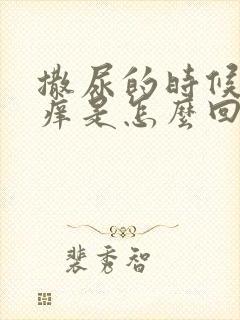 撒尿的時候
痒是怎麼回
裴秀智